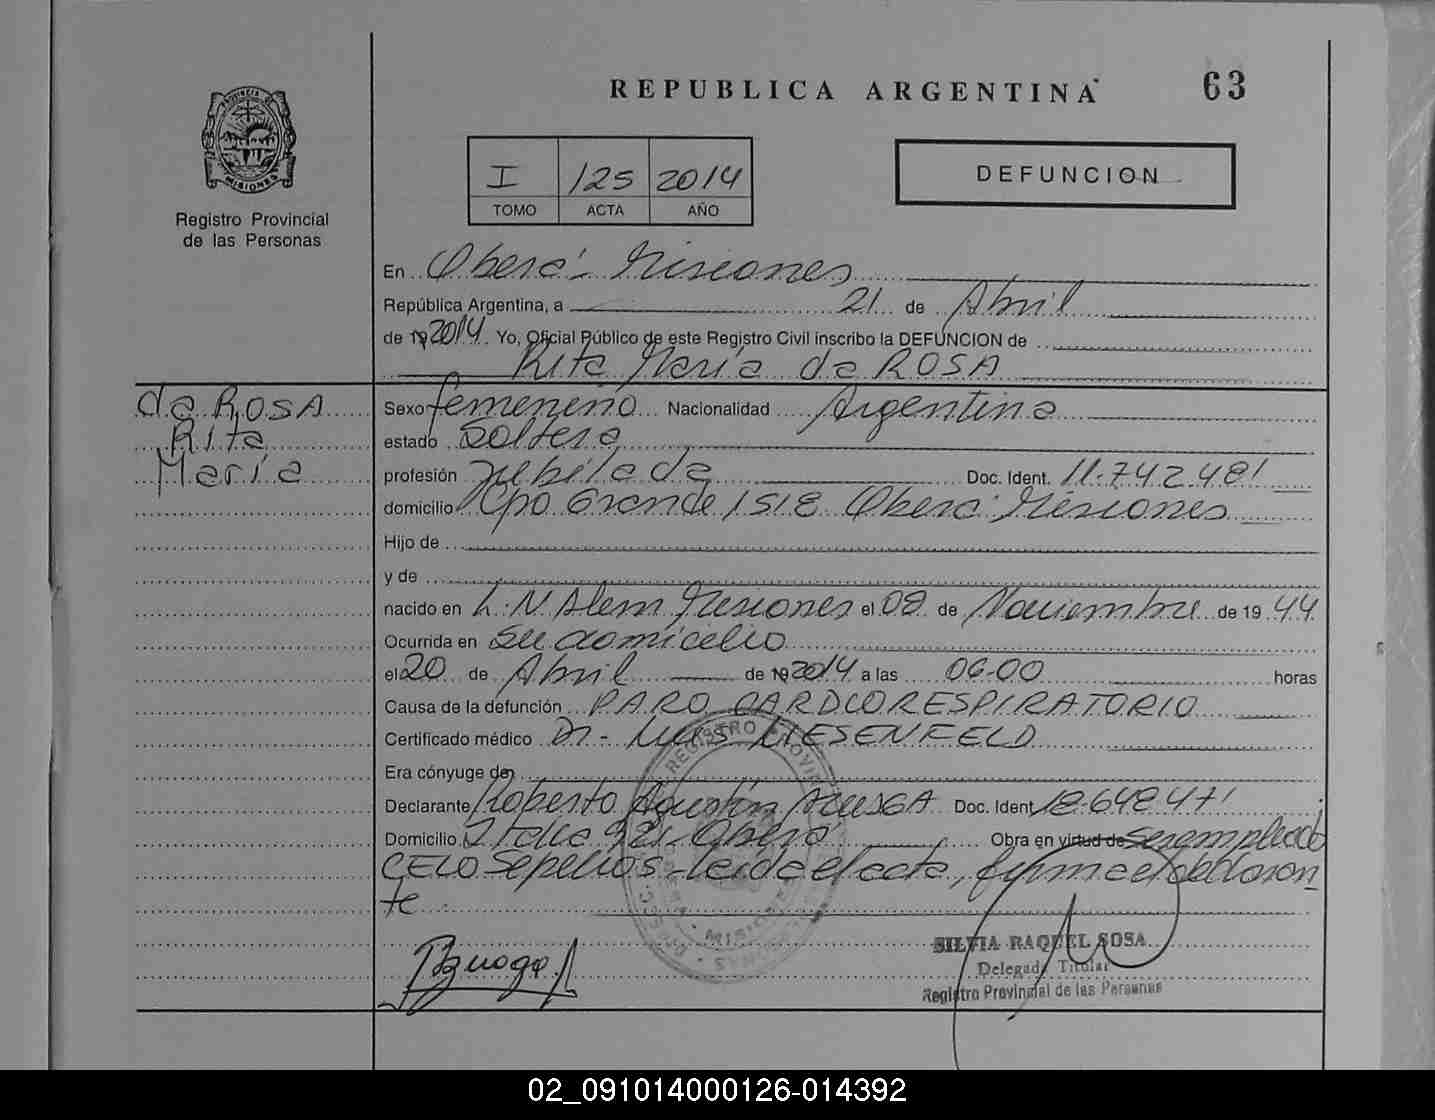 REPUBLICA ARGENTINA 63
PROVINCIA DE MISIONES
Registro Provincial
de las Personas
I 125 2014
TOMO ACTA AÑO
DEFUNCION
En Oberá - Misiones
República Argentina, a 21 de Abril
de 19 2014 Yo, Oficial Público de este Registro Civil inscribo la DEFUNCION de
Rita María da ROSA
da ROSA
Rita
María
Sexo femenino Nacionalidad Argentina
estado Soltera
profesión Jubilada Doc. Ident. 11.742.481
domicilio Cpo Grande 1518 Oberá Misiones
Hijo de
y de
nacido en L.N. Alem Misiones el 08 de Noviembre de 19 44
Ocurrida en su domicilio
el 20 de Abril de 19 2014 a las 06-00 horas
Causa de la defunción PARO CARDIORESPIRATORIO
Certificado médico Dr - Luis LIESENFELD
Era cónyuge de
Declarante Roberto Agustín Doc. Ident. 18.648.471
Domicilio Italia 921 - Oberá Obra en virtud de ser empleado
CELO Sepelios - Leída el acta, firma el declaran
te
SILVIA RAQUEL SOSA
Delegada Titular
Registro Provincial de las Personas
02_091014000126-014392